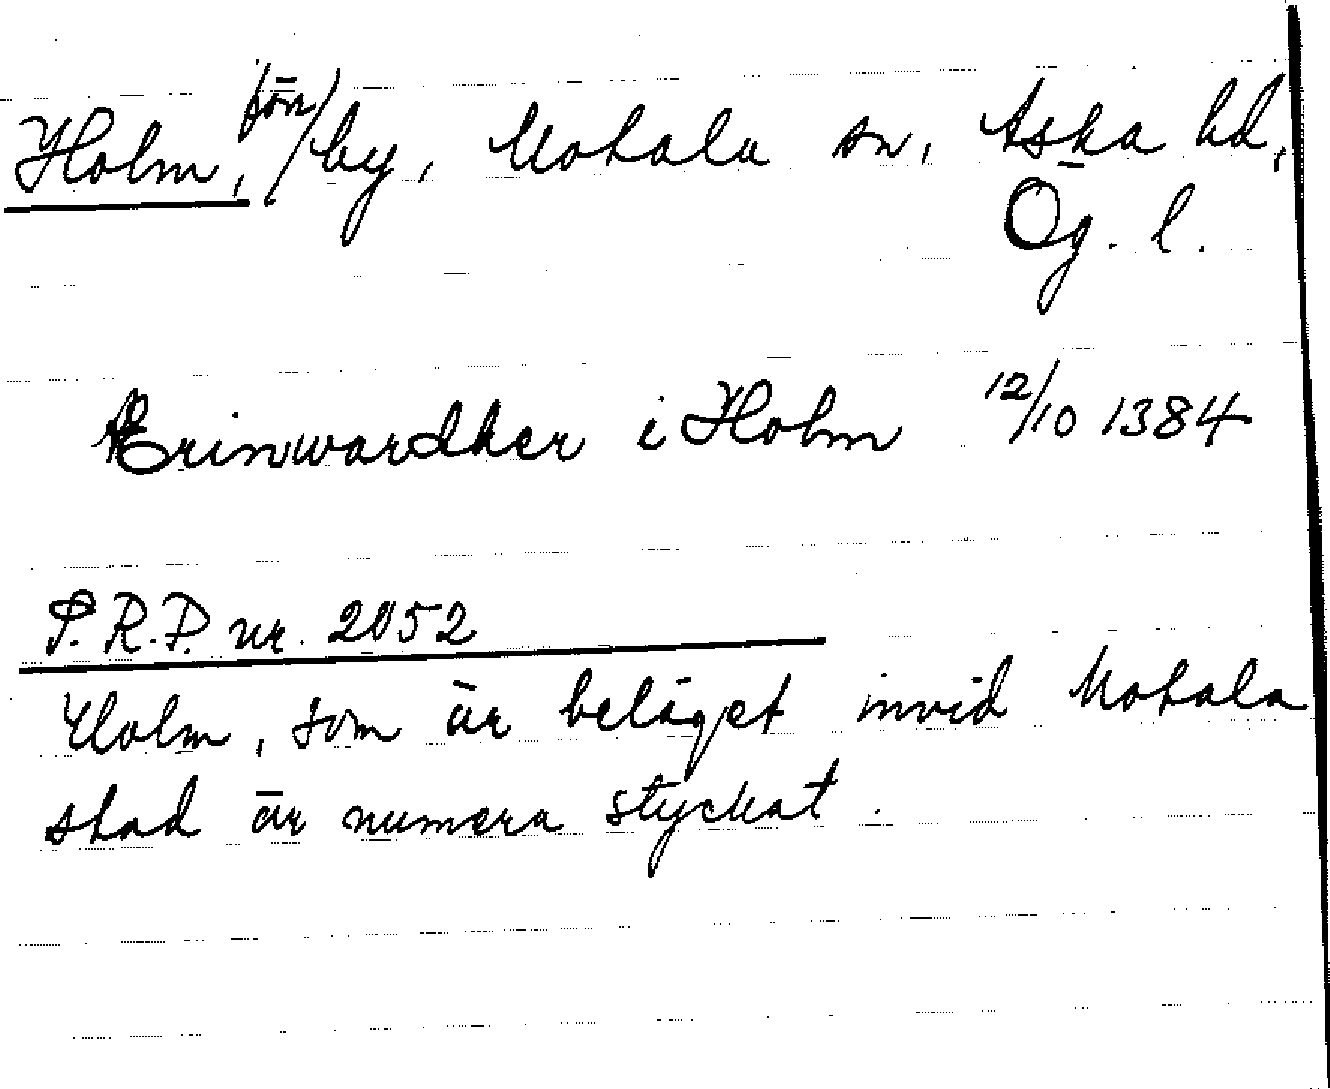 Holm, /förr/ by, Motala sn, Aska hd,
Ög. l.
Erinwardher i Holm 12/10 1384
P.R.P. nr. 2052
Holm, som är beläget invid Motala
stad är numera styckat.